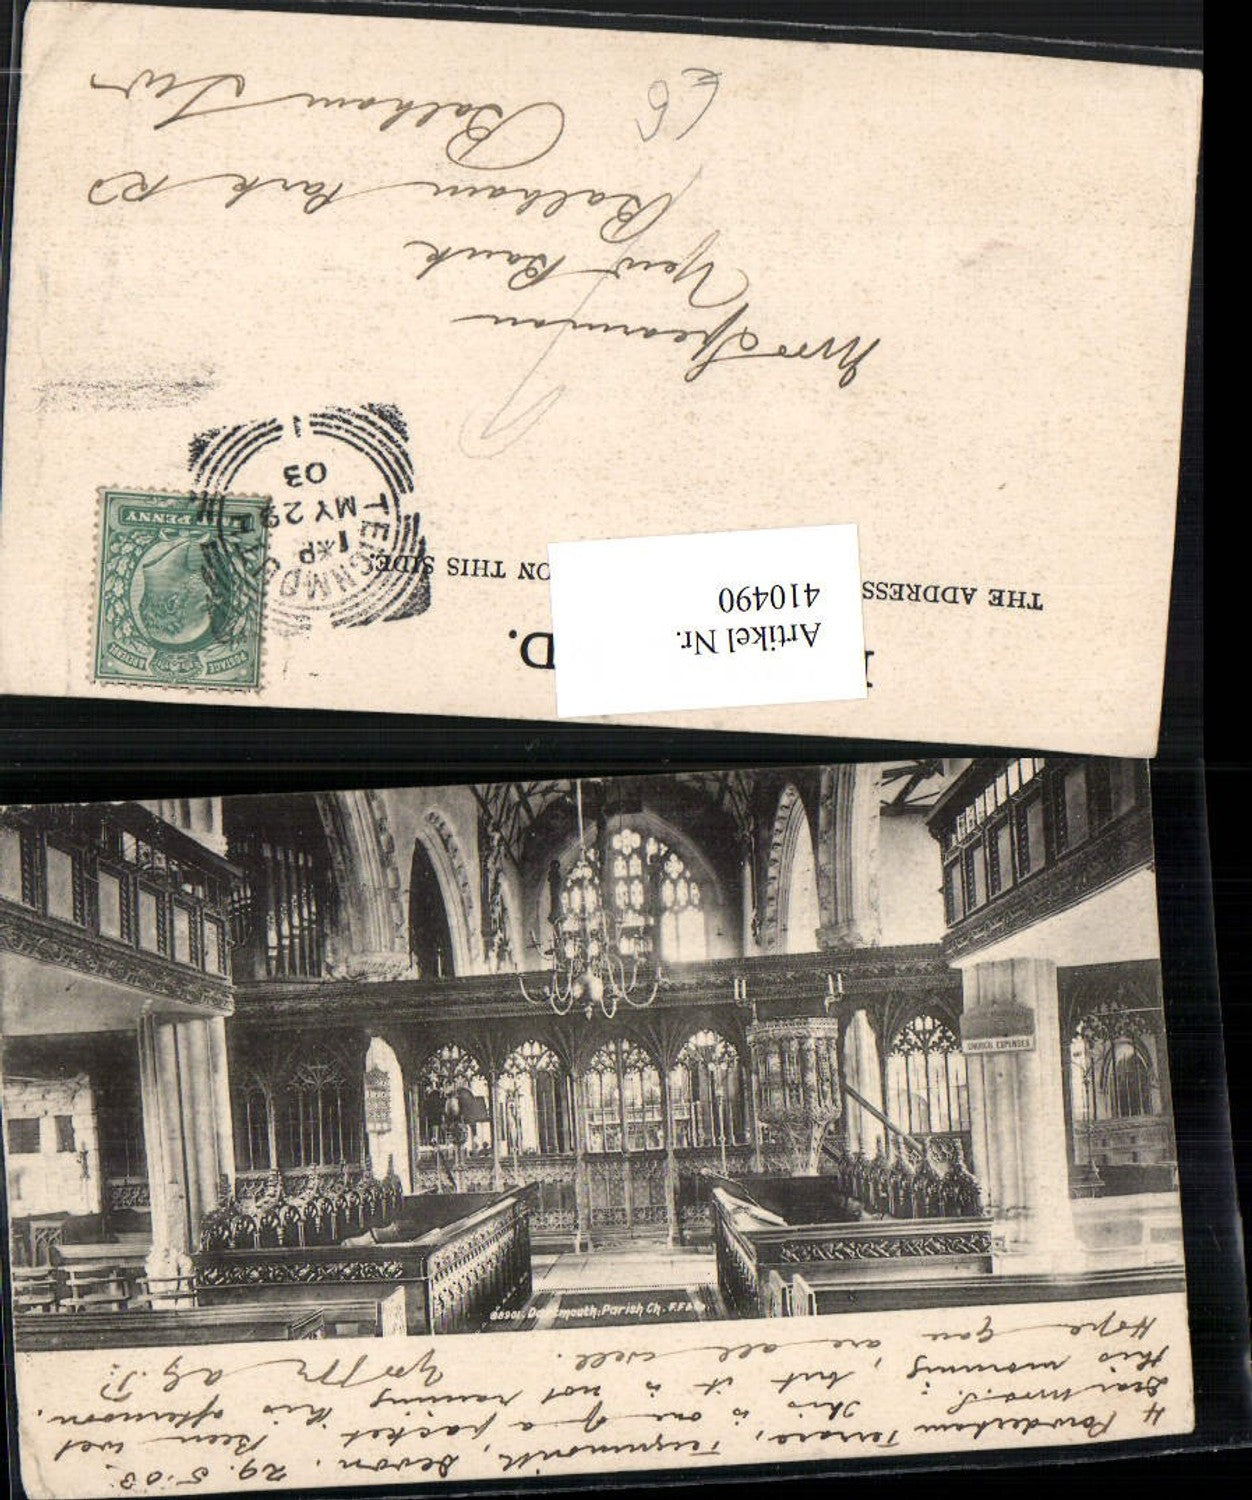 THE ADDRESS ON THIS SIDE.
D.
Artikel Nr.
410490
POSTAGE REVENUE
PENNY
TEIGNMO
1*P
MY 29
03
1
Mrs Spearman
New Bank
Balham Park Rd
Balham S.W.
CHURCH EXPENSES
68901. Dartmouth, Parish Ch. F.F. & Co
4 Powderham Terrace, Teignmouth, Devon. 29.5.03.
Dear Mrs. S. This is one of a packet. Been wet
this morning, but it is not raining this afternoon.
Hope you are all well.